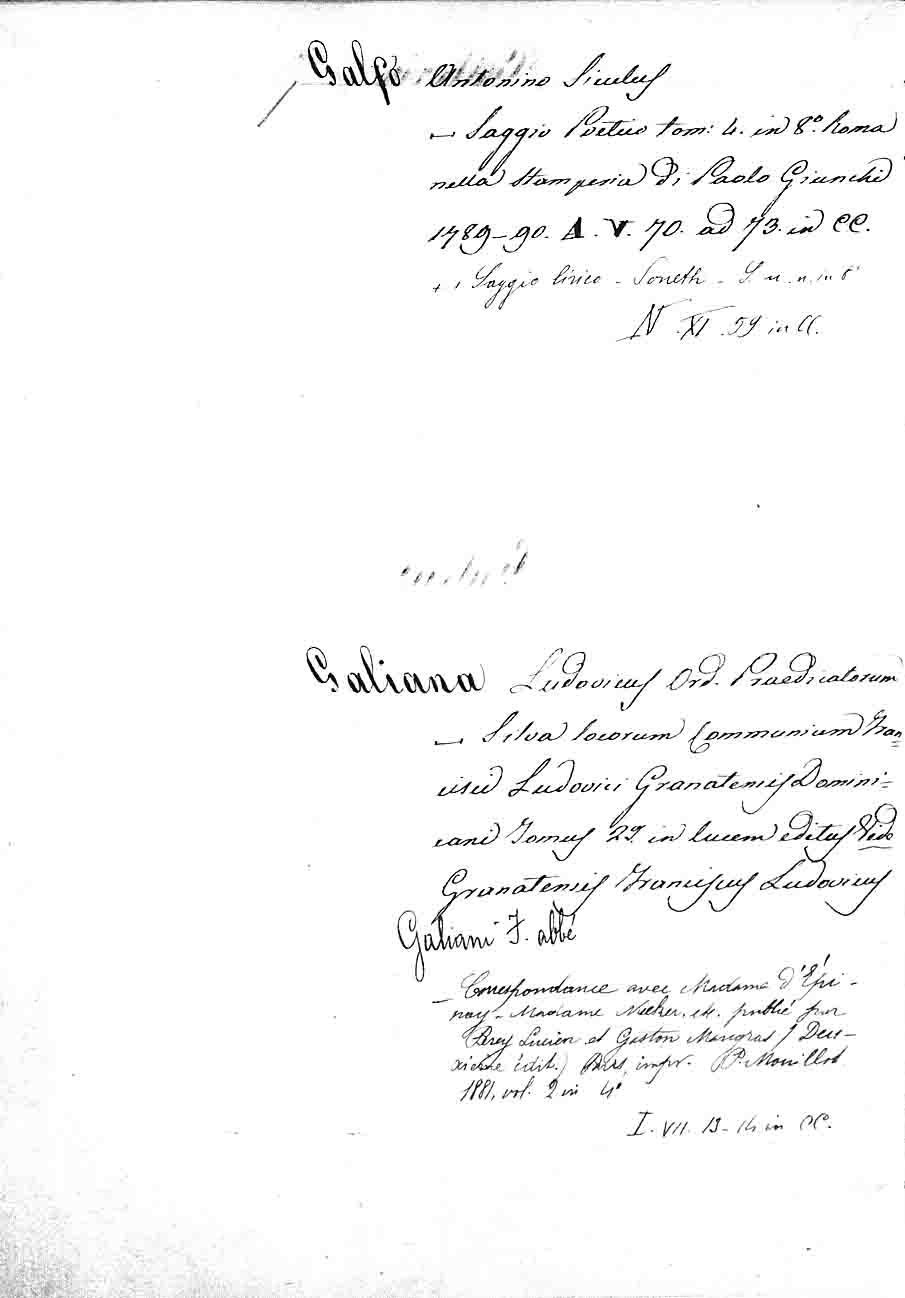 Galfo Antonino Siculus
— Saggio Poetico tom: 4. in 8.º Roma
nella stamperia di Paolo Giunchi
1789-90. A. V. 70. ad 73. in CC.
Saggio lirico - Sonetti - S. n. n. in 8º
N. XI. 59 in CC.
Galiana Ludovicus Ord. Praedicatorum
— Silva locorum Communium Fran=
cisci Ludovici Granatensis Domini=
cani Tomus 29. in lucem editus Vide
Granatensis Franciscus Ludovicus
Galiani F. abbé
— Correspondance avec Madame d'Épi-
nay - Madame Necker, etc. publié par
Perey Lucien et Gaston Maugras (Deu-
xième édit.) Paris, impr. P. Mouillot
1881, vol. 2 in 4º
I. VII. 13-14 in CC.